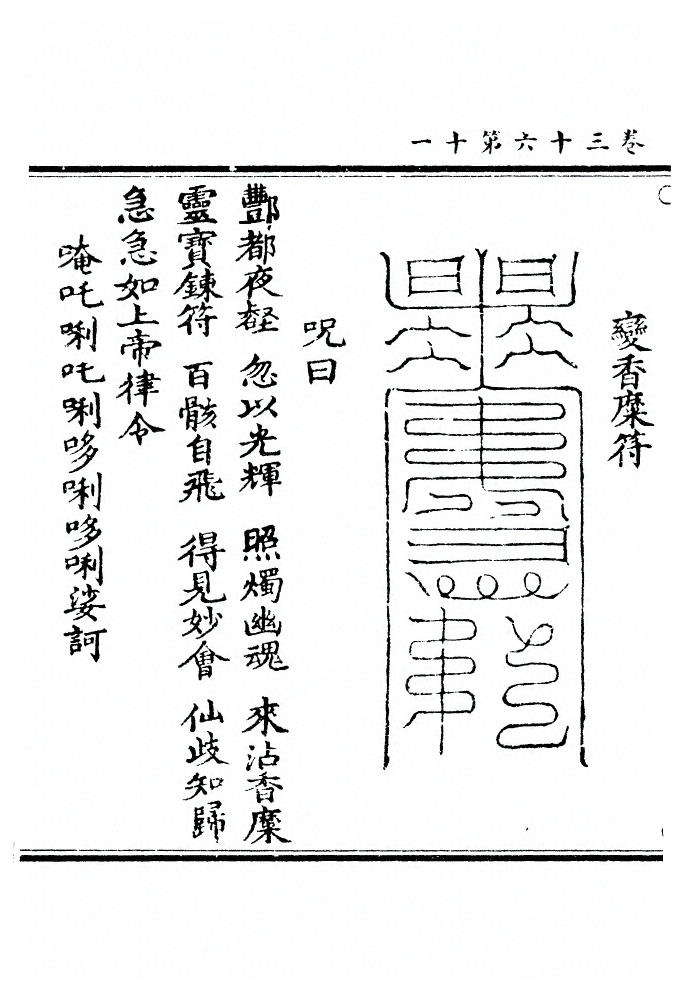 卷三十六第十一
變香糜符
呪曰
酆都夜壑 忽以光輝 照燭幽魂 來沾香糜
靈寶鍊符 百骸自飛 得見妙會 仙歧知歸
急急如上帝律令
唵吒唎吒唎哆唎哆唎娑訶